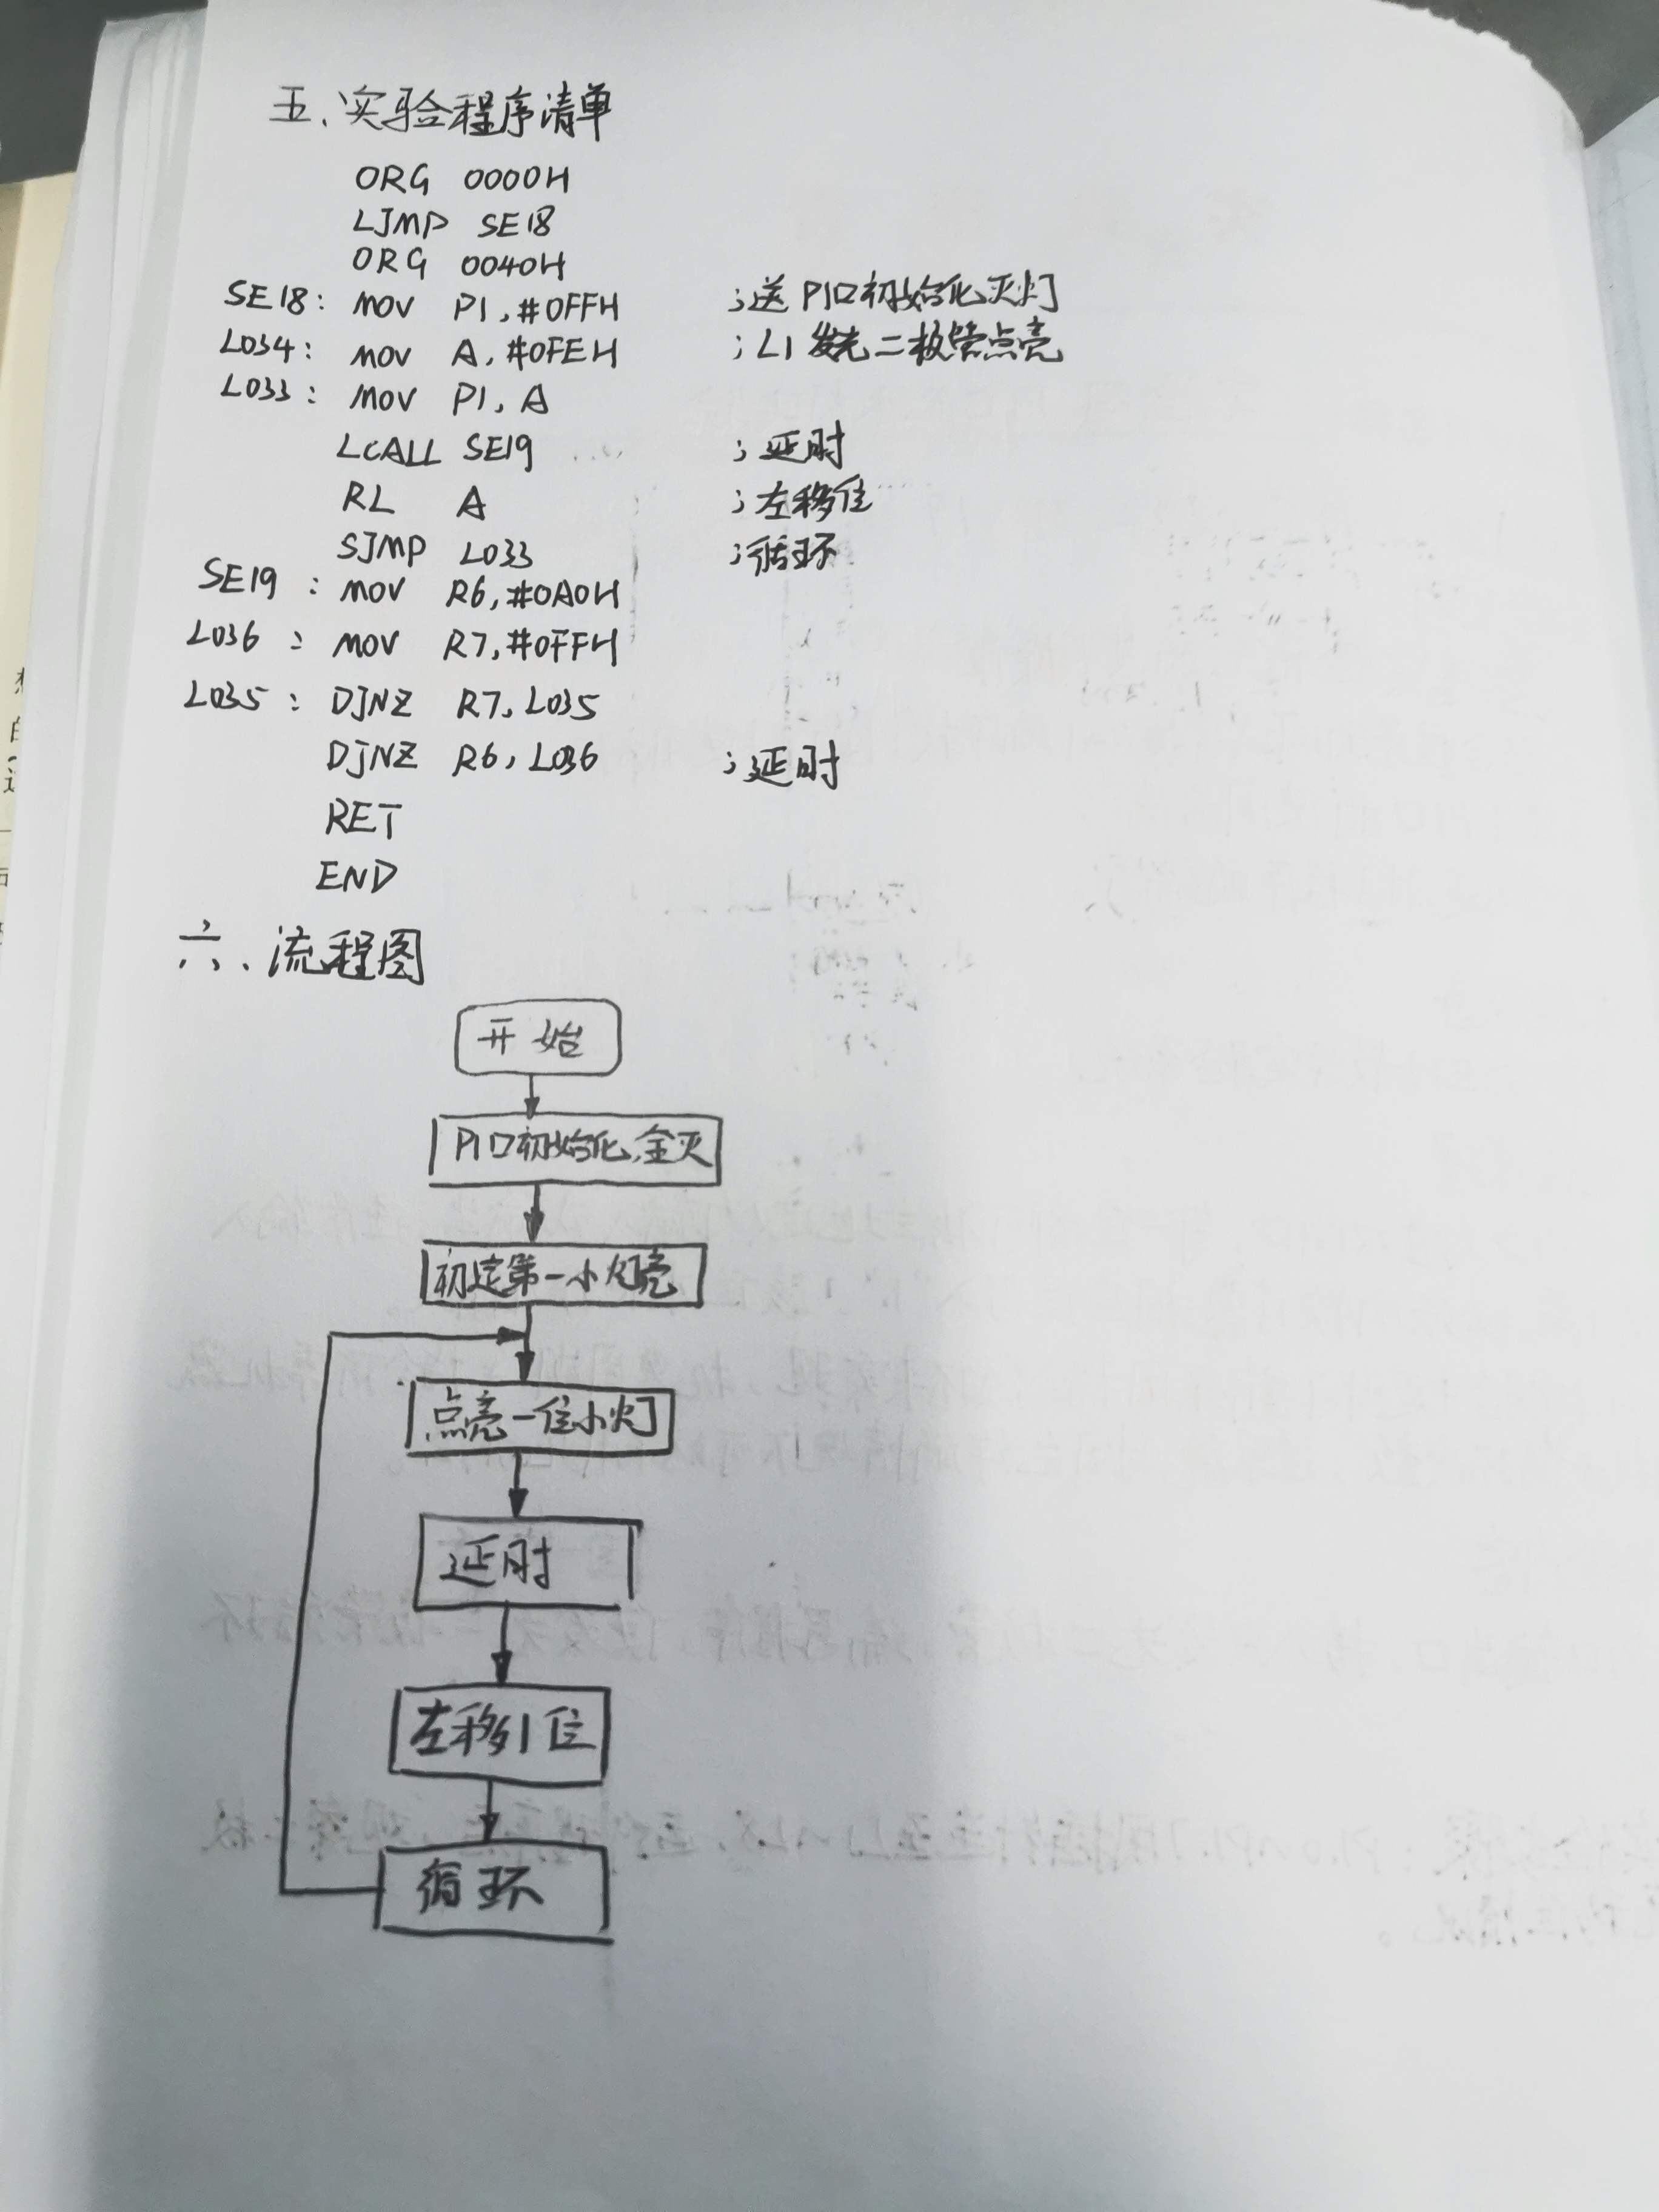 五、实验程序清单
ORG 0000H
LJMP SE18
ORG 0040H
SE18: MOV P1,#0FFH ;送P1口初始化灭灯
L034: MOV A,#0FEH ;L1发光二极管点亮
L033: MOV P1,A
LCALL SE19 ;延时
RL A ;左移位
SJMP L033 ;循环
SE19: MOV R6,#0A0H
L036: MOV R7,#0FFH
L035: DJNZ R7,L035
DJNZ R6,L036 ;延时
RET
END
六、流程图
开始
P1口初始化,全灭
初定第一小灯亮
点亮一位小灯
延时
左移1位
循环